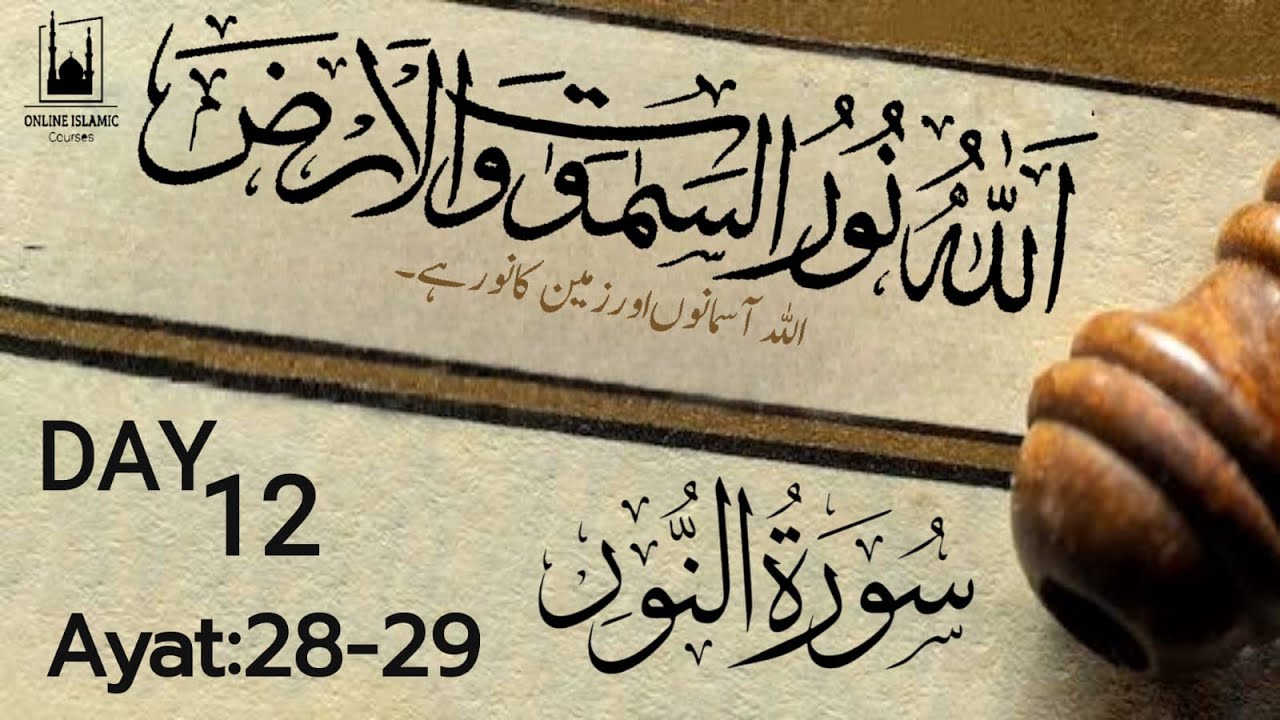 ONLINE ISLAMIC
Courses
اَللّٰهُ نُورُ السَّمٰوٰتِ وَالْاَرْضِ
اللہ آسمانوں اور زمین کا نور ہے۔
DAY
12
سُورَةُ النُّورِ
Ayat:28-29